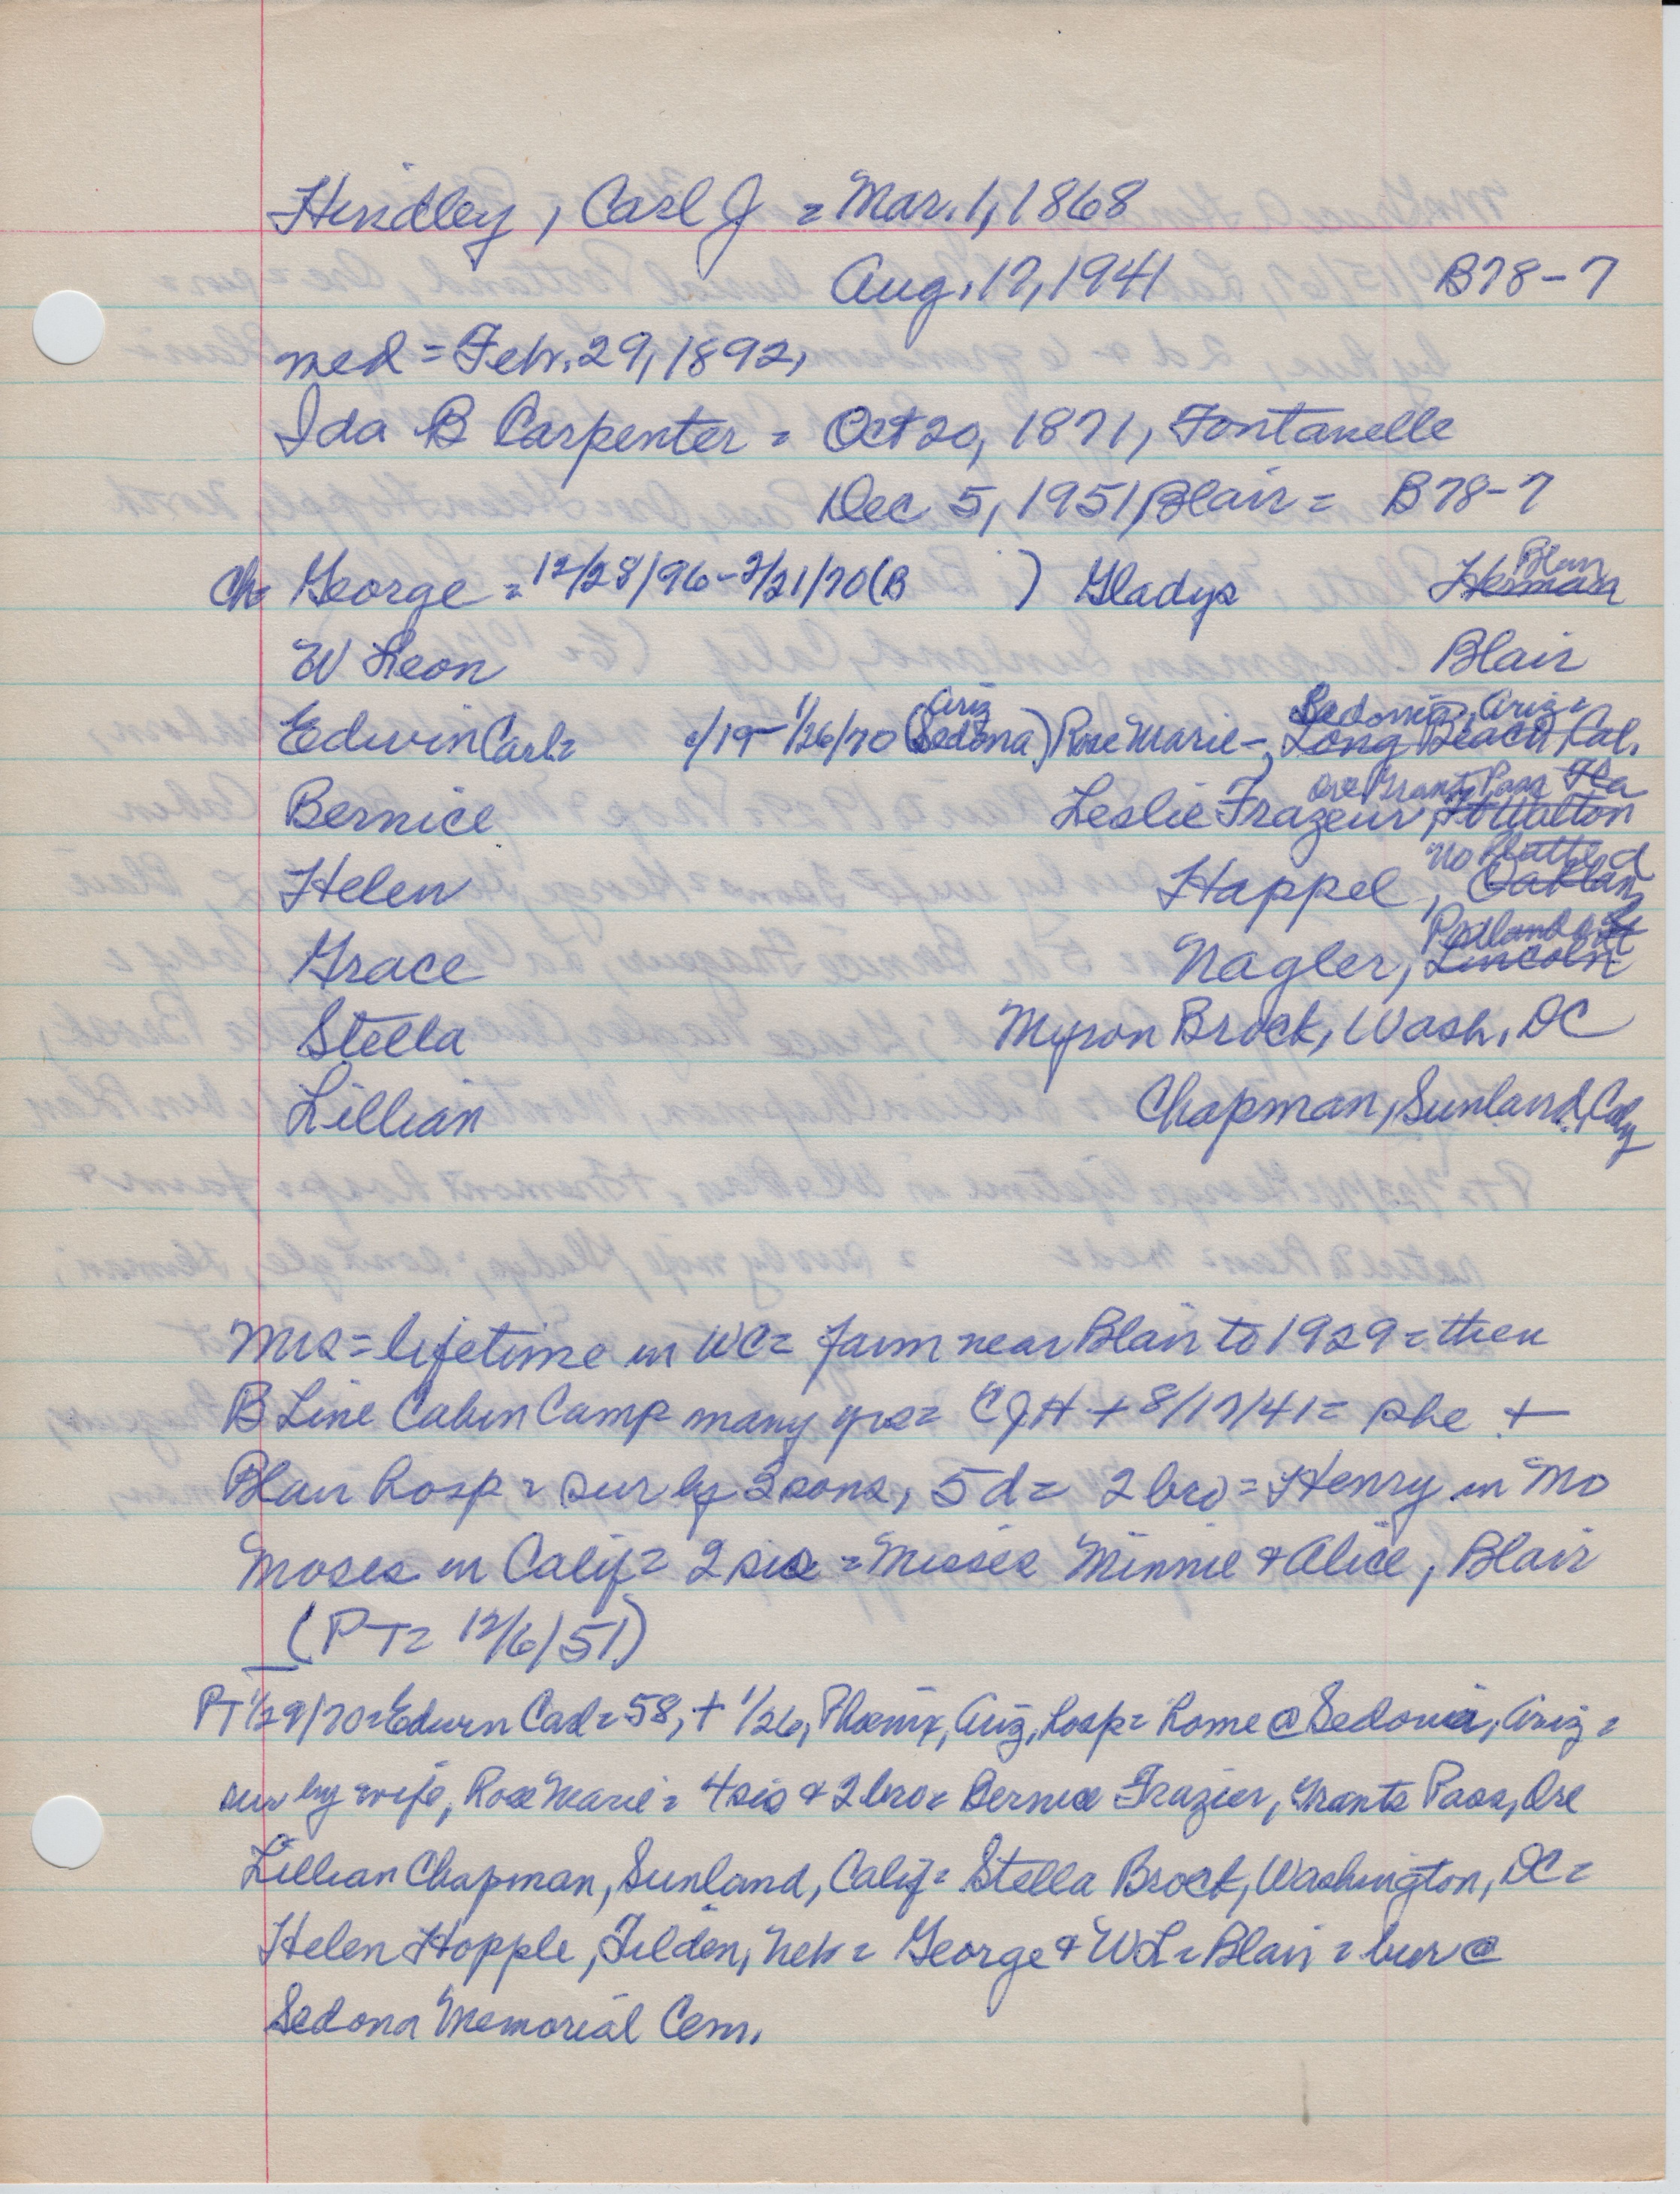 Hindley, Carl J = Mar. 1, 1868
Aug. 17, 1941 B78-7
med = Feb. 29, 1892,
Ida B Carpenter = Oct 20, 1871, Fontanelle
Dec 5, 1951, Blair = B78-7
Blair
Ch George = 12/28/96 - 2/21/70 (B ) Gladys Herman
W Leon Blair
Ariz Sedonia, Ariz =
Edwin Carl = /19 - 1/26/70 (Sedona) Rose Marie - Long Beach, Cal.
Ore Grants Pass Fla
Bernice Leslie Frazeur, Ft Walton
No Platte
Helen Happel, Oakland
Portland
Grace Nagler, Lincoln
Stella Myron Brock, Wash, DC
Lillian Chapman, Sunland, Calif
Mrs = lifetime in WC = farm near Blair to 1929 = then
B Line Cabin Camp many yrs = CJH + 8/17/41 = she +
Blair hosp = sur by 3 sons, 5 d = 2 bro = Henry in Mo
Moses in Calif = 2 sis = Misses Minnie & Alice, Blair
(PT = 12/6/51)
PT 1/29/70 = Edwin Carl = 58, + 1/26, Phoenix, Ariz, hosp = home @ Sedonia, Ariz =
sur by wife, Rose Marie = 4 sis & 2 bro = Bernice Frazier, Grants Pass, Ore
Lillian Chapman, Sunland, Calif = Stella Brock, Washington, DC =
Helen Hopple, Tilden, Neb = George & WL = Blair = bur @
Sedona Memorial Cem.